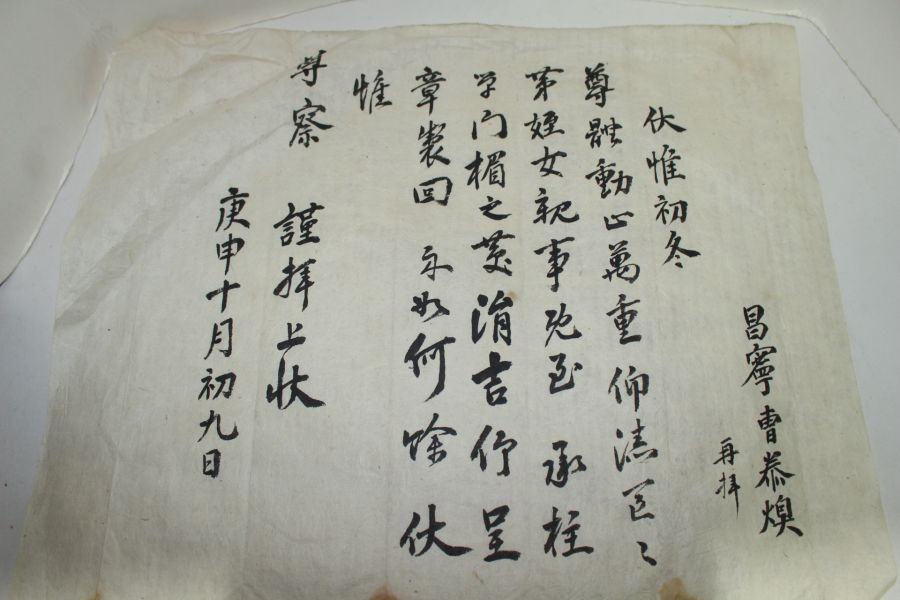 昌寧曺恭煥
再拜
伏惟初冬
尊體動止萬重仰溸區〻
第姪女親事既至 承柱
學門楣之慶涓吉仰呈
章製回 示如何餘伏
惟
尊察 謹拜上狀
庚申十月初九日